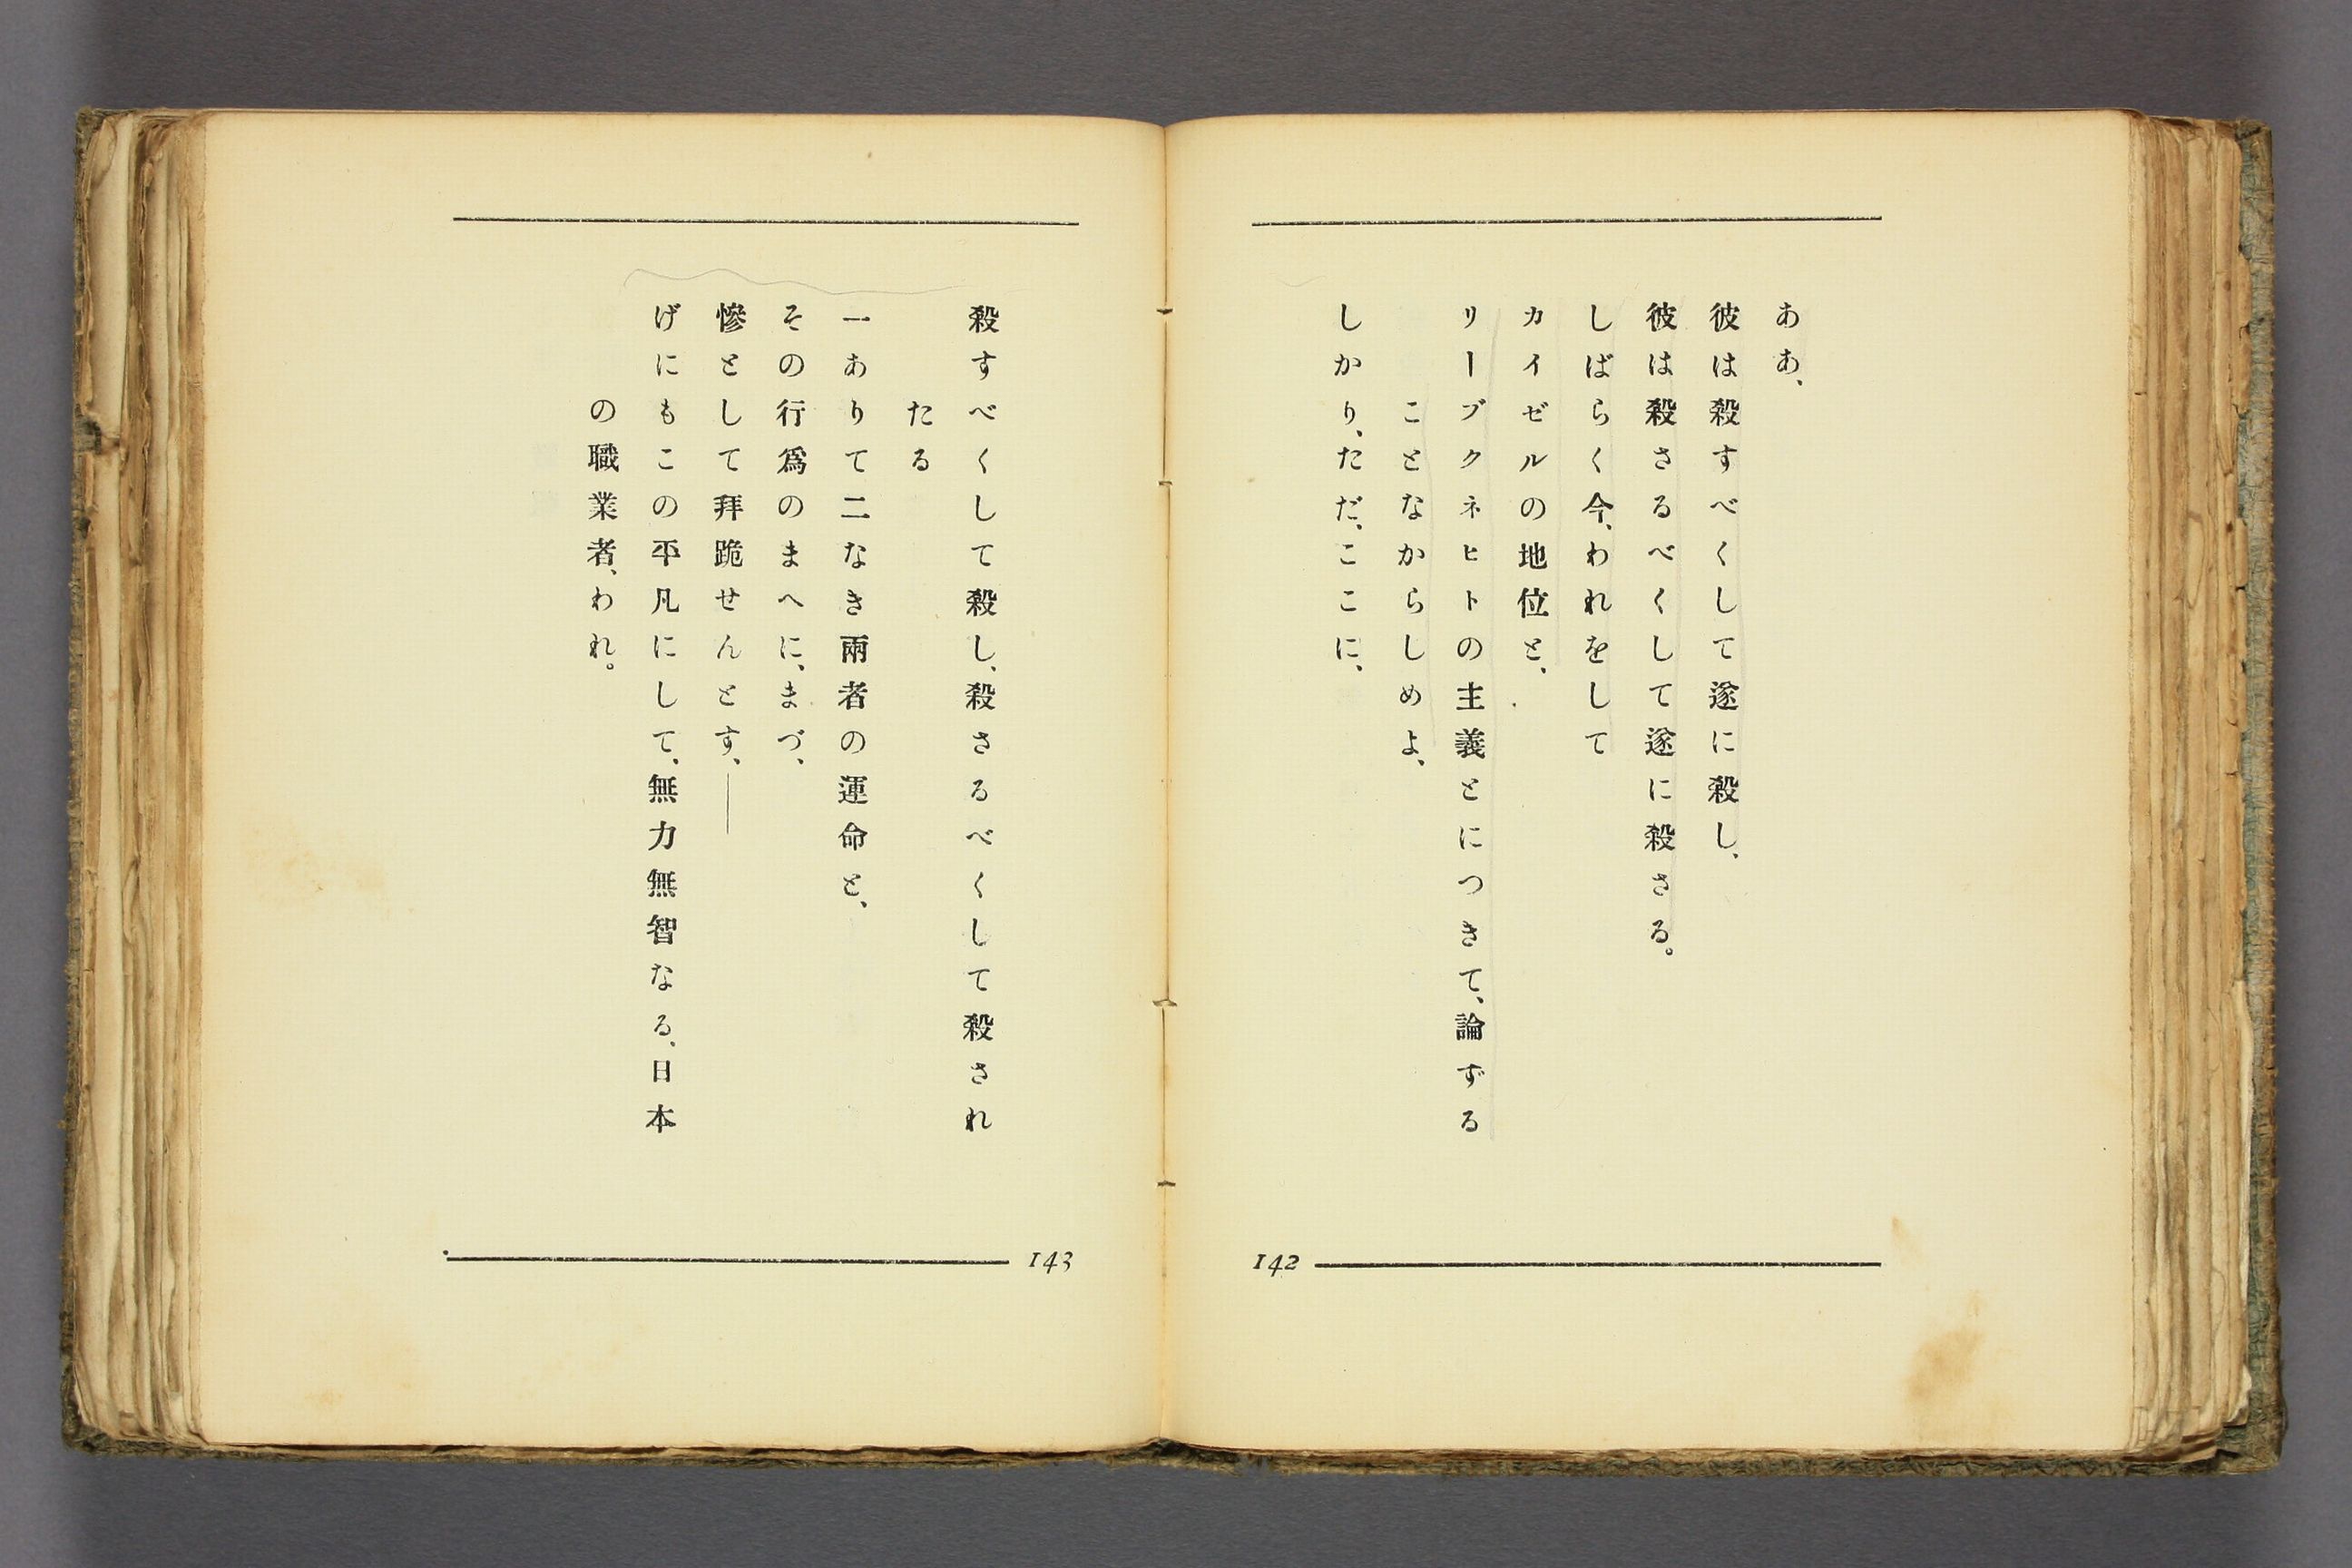 ああ、
彼は殺すべくして遂に殺し、
彼は殺さるべくして遂に殺さる。
しばらく今、われをして
カイゼルの地位と、
リーブクネヒトの主義とにつきて、論ずる
ことなからしめよ、
しかり、ただ、ここに、
142
殺すべくして殺し、殺さるべくして殺され
たる
一ありて二なき兩者の運命と、
その行爲のまへに、まづ、
慘として拜跪せんとす、――
げにもこの平凡にして、無力無智なる、日本
の職業者、われ。
143